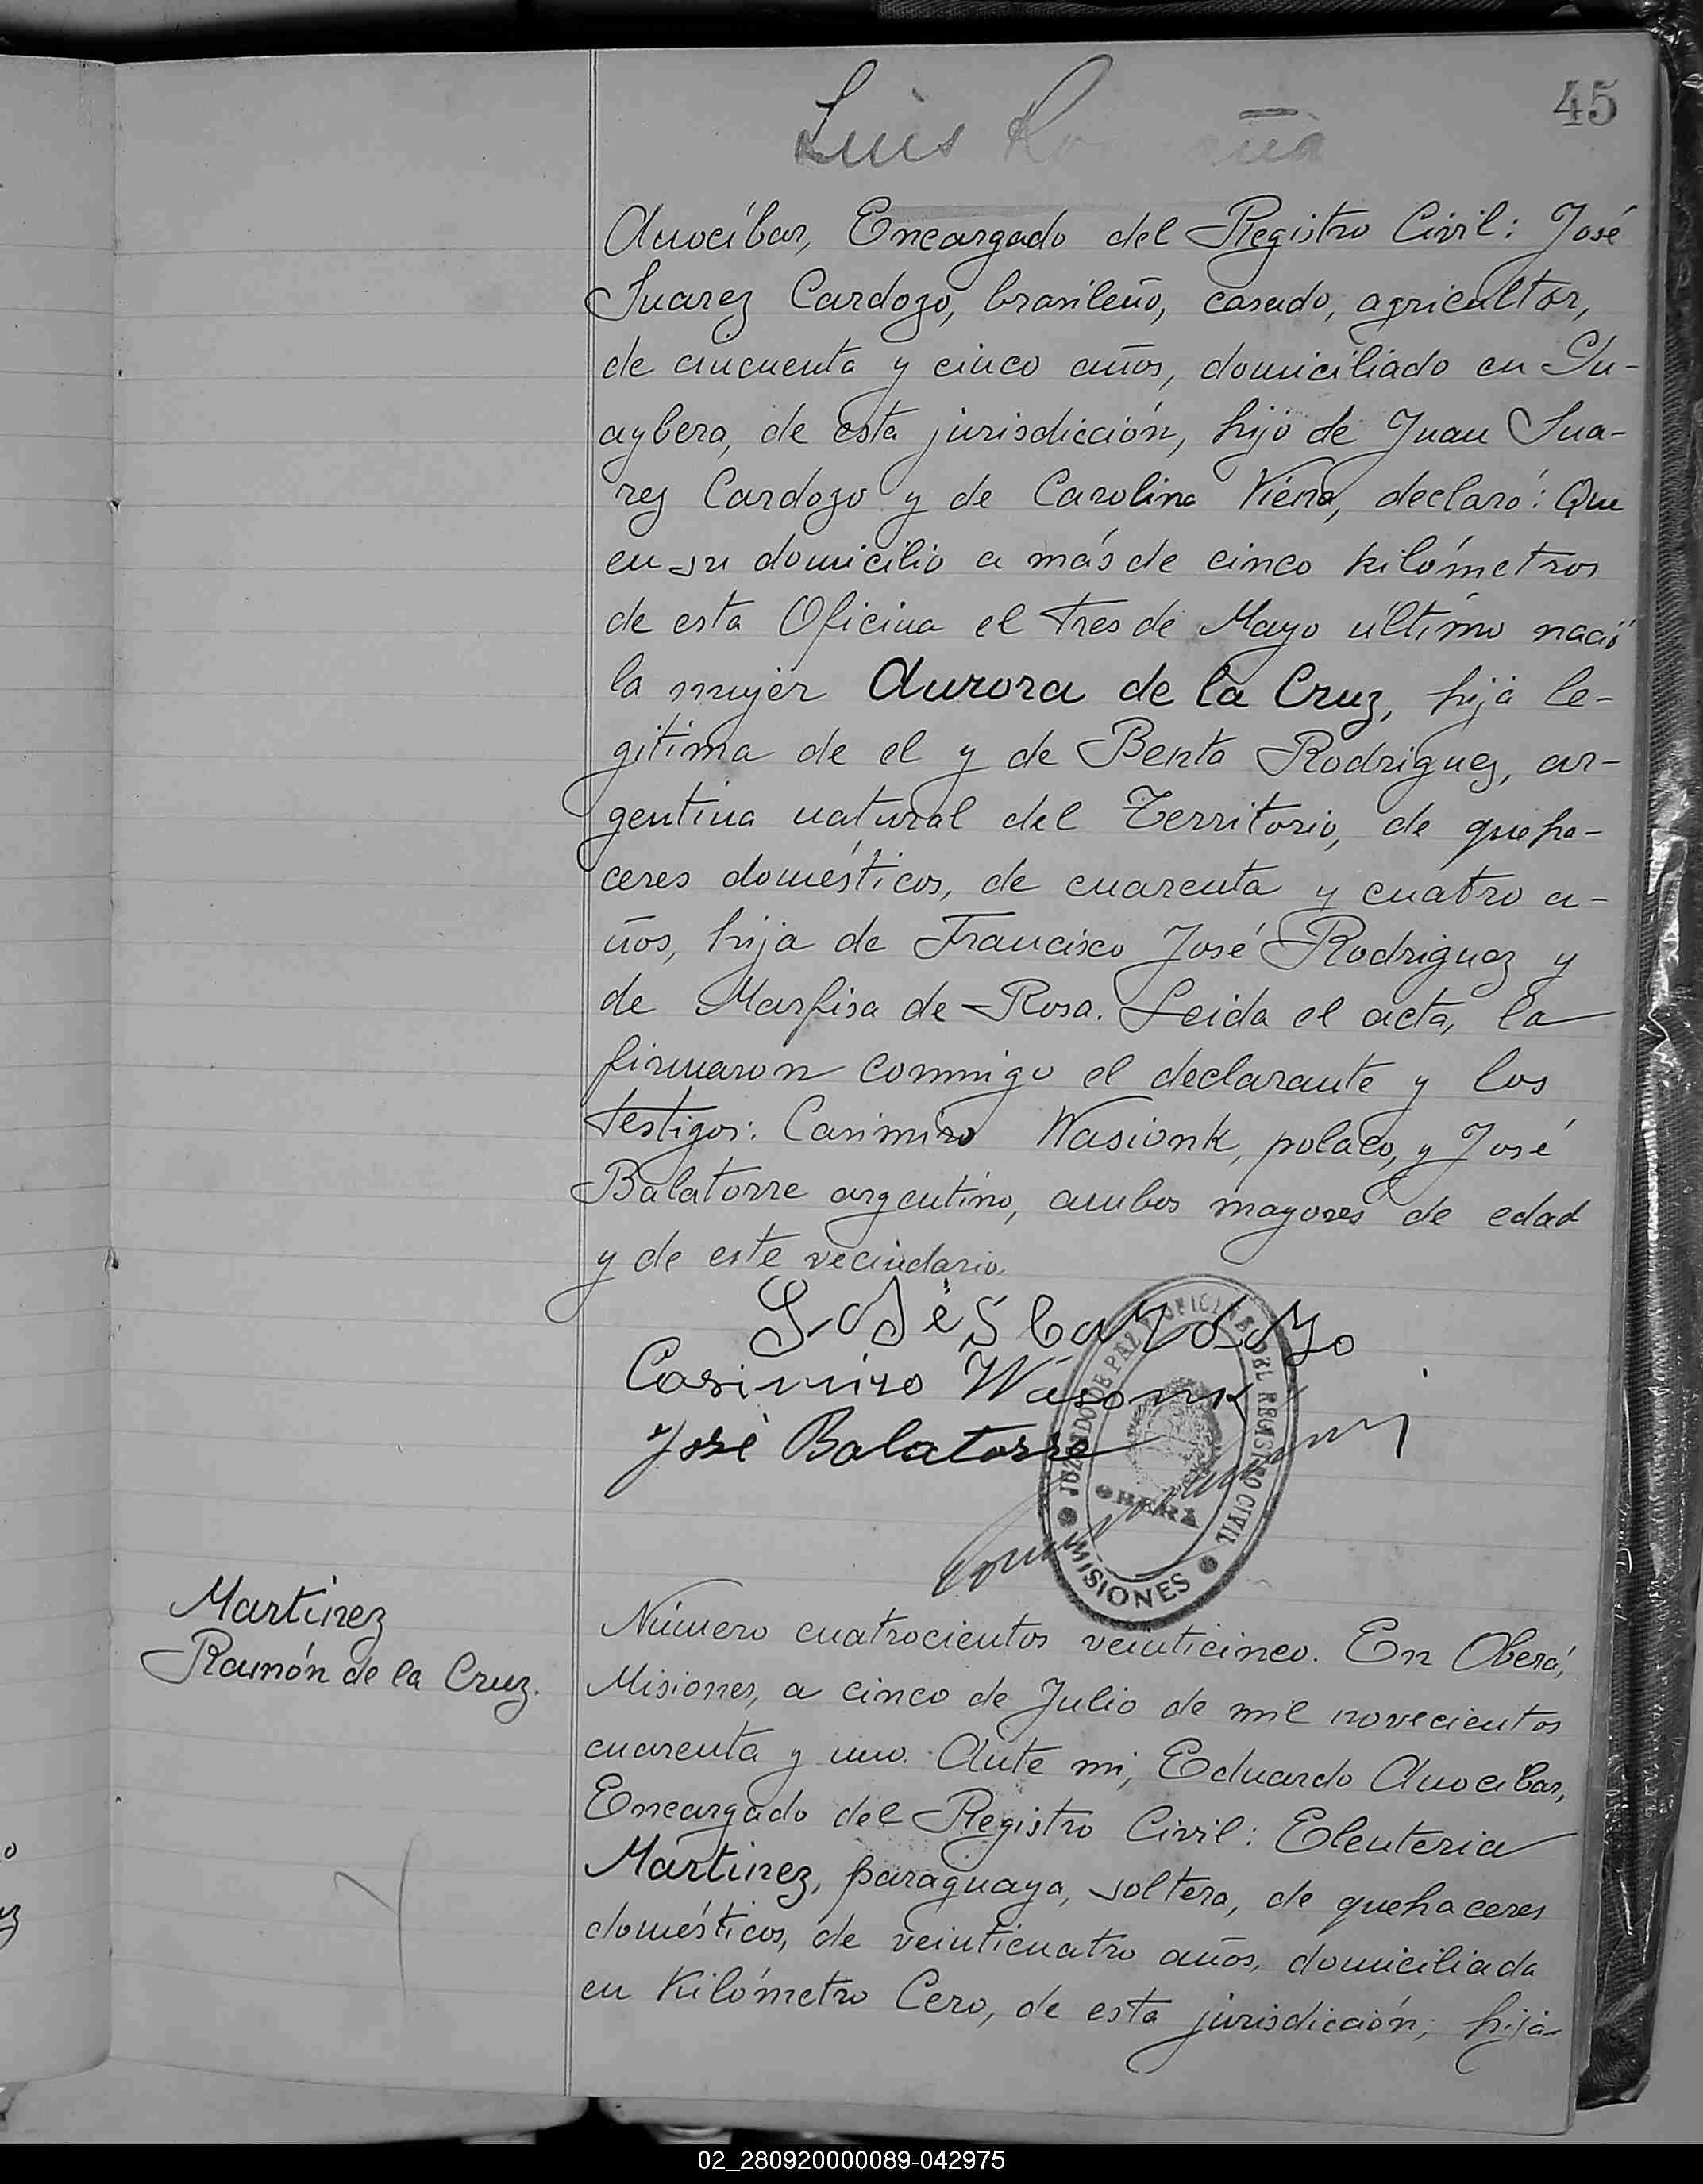 45
Luis
Auocíbar, Encargado del Registro Civil: José
Suarez Cardozo, brasileño, casado, agricultor,
de cincuenta y cinco años, domiciliado en Gu-
aybera, de esta jurisdicción, hijo de Juan Sua-
rez Cardozo y de Carolina Viena, declaró: Que
en su domicilio a más de cinco kilómetros
de esta Oficina el tres de Mayo último nació
la mujer Aurora de la Cruz, hija le-
gitima de el y de Benta Rodriguez, ar-
gentina natural del Territorio, de queha-
ceres domésticos, de cuarenta y cuatro a-
ños, hija de Francisco José Rodriguez y
de Marfisa de Rosa. Leida el acta, la
firmaron conmigo el declarante y los
testigos: Casimiro Wasionk, polaco, y José
Balatorre argentino, ambos mayores de edad
y de este vecindario.
Casimiro Wasonk
José Balatorre
JUZGADO DE PAZ Y OFICINA DEL REGISTRO CIVIL
OBERÁ
MISIONES
Martinez
Ramón de la Cruz.
Número cuatrocientos veinticinco. En Oberá,
Misiones, a cinco de Julio de mil novecientos
cuarenta y uno. Ante mi, Eduardo Auocibar,
Encargado del Registro Civil: Eleuteria
Martinez, paraguaya, soltera, de quehaceres
domésticos, de veinticuatro años, domiciliada
en Kilómetro Cero, de esta jurisdicción; hija
02_280920000089-042975